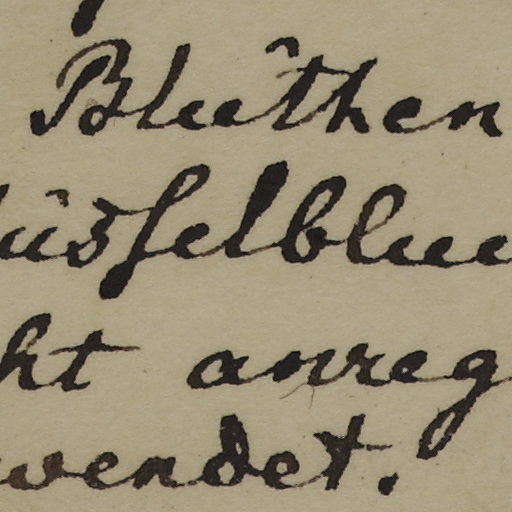 Blüthen
üsselblu
ht anreg
wendet.